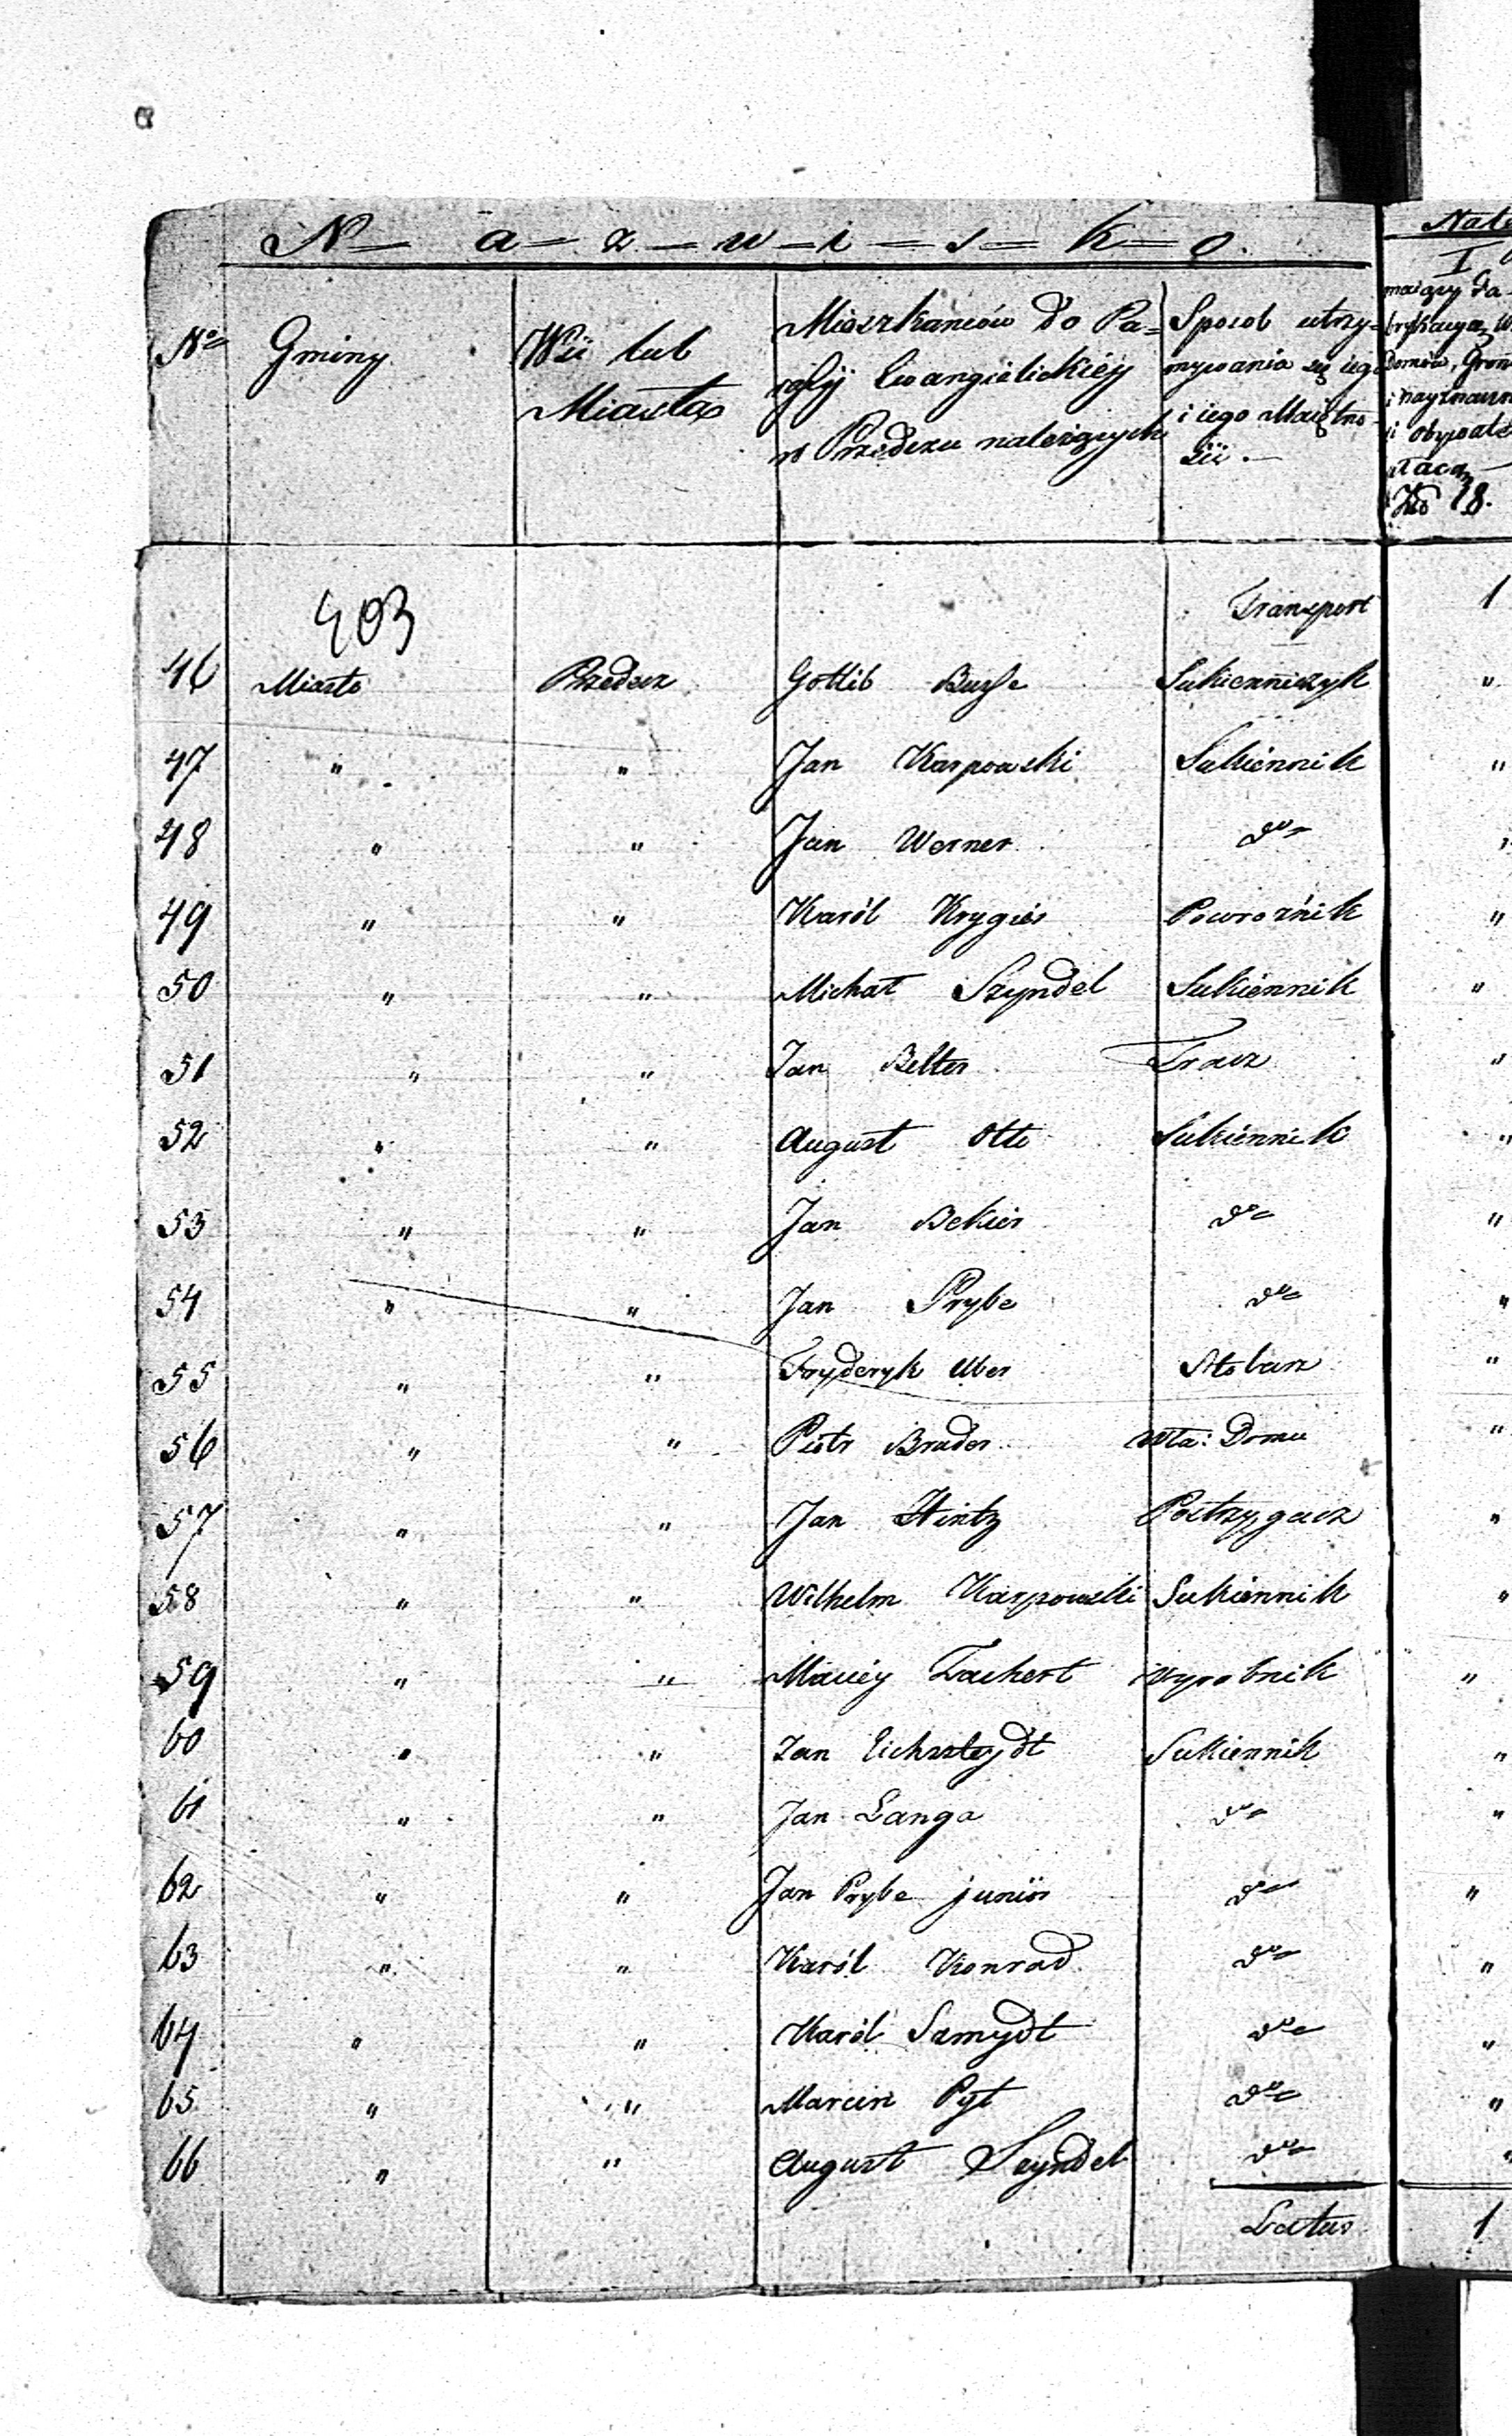 N - a - z - w - i - s - k - o.
No Gminy Wsi lub Miasta Mieszkanców do Parafij Ewangielickiéy w Przedczu należących Sposob utrzymywania się iego i iego Maiętności.
403
Transport 1
46 Miasto Przedecz Gottlib Busse Sukienniczyk "
47 " " Jan Karpowski Sukiennik "
48 " " Jan Werner do "
49 " " Karól Krygier Powroźnik "
50 " " Michał Szyndel Sukiennik "
51 " " Jan Belter Tracz "
52 " " August Otto Sukiennik "
53 " " Jan Bekier do "
54 " " Jan Prybe do "
55 " " Fryderyk Uber Stolarz "
56 " " Piotr Bruder Wła: Domu "
57 " " Jan Hintz Postrzygacz "
58 " " Wilhelm Karpowski Sukiennik "
59 " " Maciéy Tachert Wyrobnik "
60 " " Jan Eichszteydt Sukiennik "
61 " " Jan Langa do "
62 " " Jan Prybe junior do "
63 " " Karól Konrad do "
64 " " Karól Szmydt do "
65 " " Marcin Pyt do "
66 " " August Szyndel do "
Latus 1